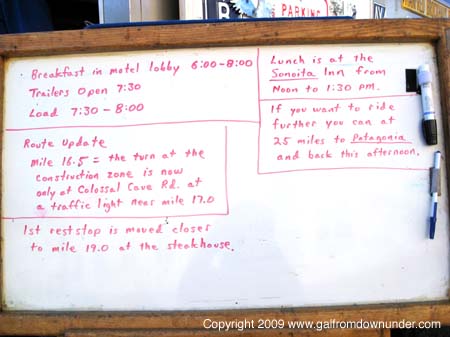 PARKING
Breakfast in motel lobby 6:00-8:00
Trailers Open 7:30
Load 7:30 - 8:00
Route Update
Mile 16.5 = the turn at the
construction zone is now
only at Colossal Cave Rd. at
a traffic light near mile 17.0
1st rest stop is moved closer
to mile 19.0 at the steakhouse.
Lunch is at the
Sonoita Inn from
Noon to 1:30 pm.
If you want to ride
further you can at
25 miles to Patagonia
and back this afternoon.
Copyright 2009 www.galfromdownunder.com